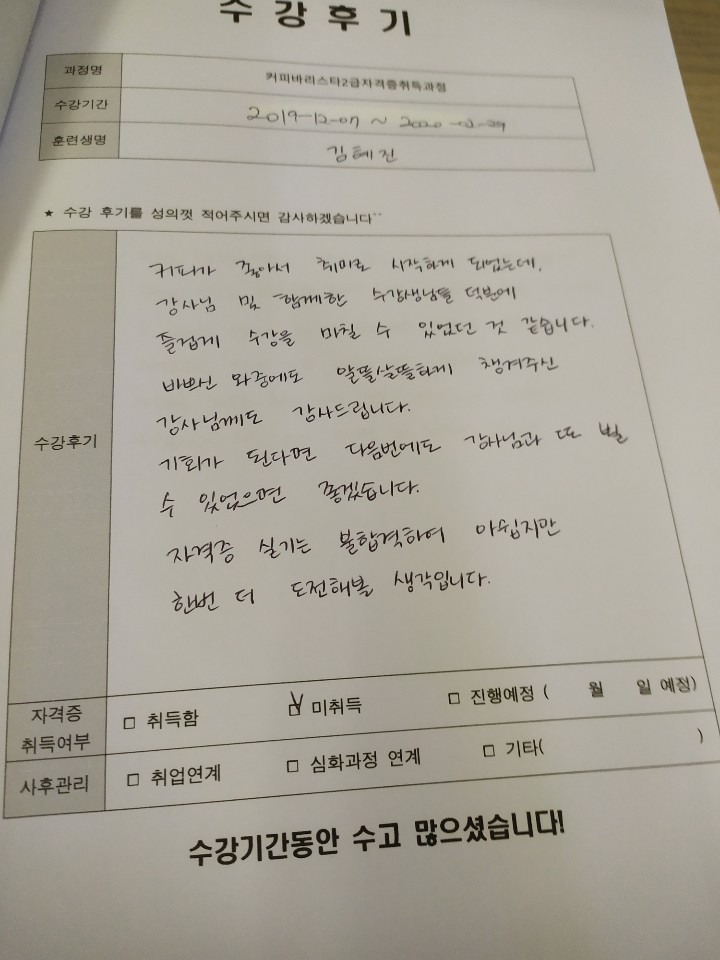 수강후기
과정명 커피바리스타2급자격증취득과정
수강기간 2019-12-07 ~ 2020-02-29
훈련생명 김혜진
★ 수강 후기를 성의껏 적어주시면 감사하겠습니다^^
수강후기
커피가 좋아서 취미로 시작하게 되었는데,
강사님 및 함께한 수강생님들 덕분에
즐겁게 수강을 마칠 수 있었던 것 같습니다.
바쁘신 와중에도 알뜰살뜰하게 챙겨주신
강사님께도 감사드립니다.
기회가 된다면 다음번에도 강사님과 또 뵐
수 있었으면 좋겠습니다.
자격증 실기는 불합격하여 아쉽지만
한번 더 도전해볼 생각입니다.
자격증 취득여부 □ 취득함 ☑ 미취득 □ 진행예정 ( 월 일 예정)
사후관리 □ 취업연계 □ 심화과정 연계 □ 기타( )
수강기간동안 수고 많으셨습니다!